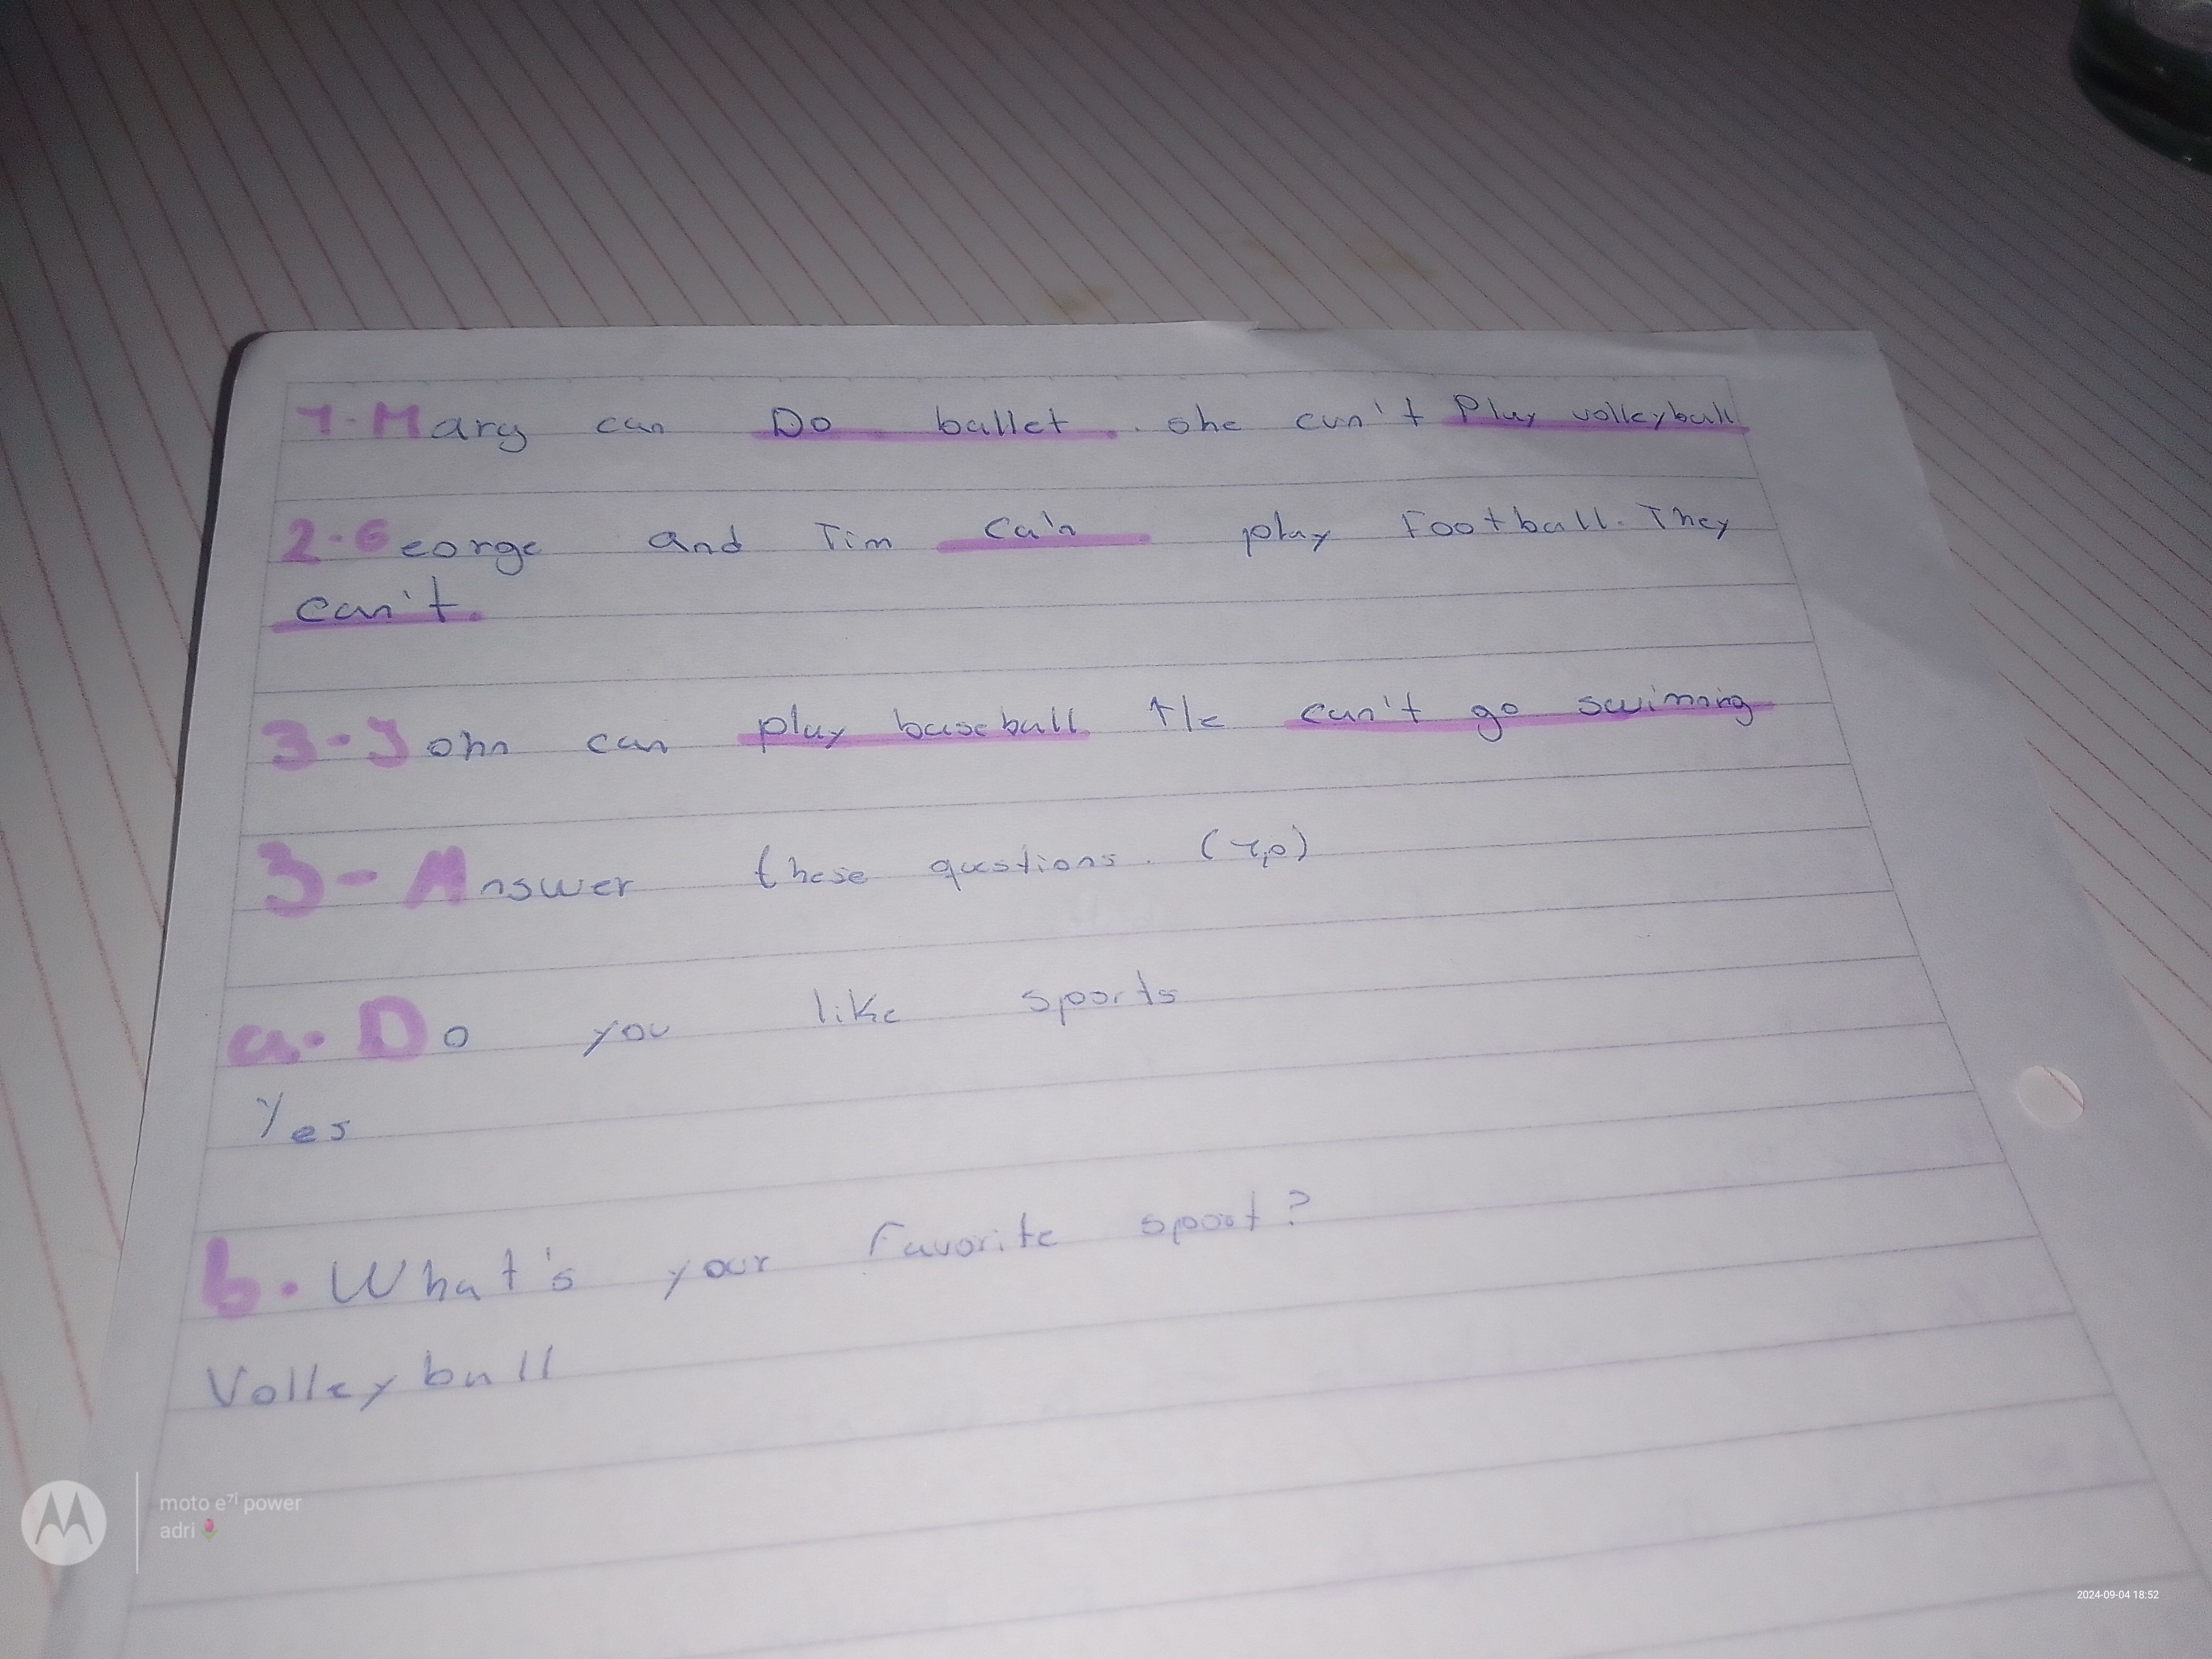 1. Mary can Do ballet. she can't Play volleyball
2. George and Tim Ca'n play Football. They
can't.
3- John can play baseball He can't go swimnig
3- Answer these questions. (1,0)
a. Do you like sports
Yes
b. What's your Favorite sport?
Volleyball
moto e7i power
adri🌷
2024-09-04 18:52